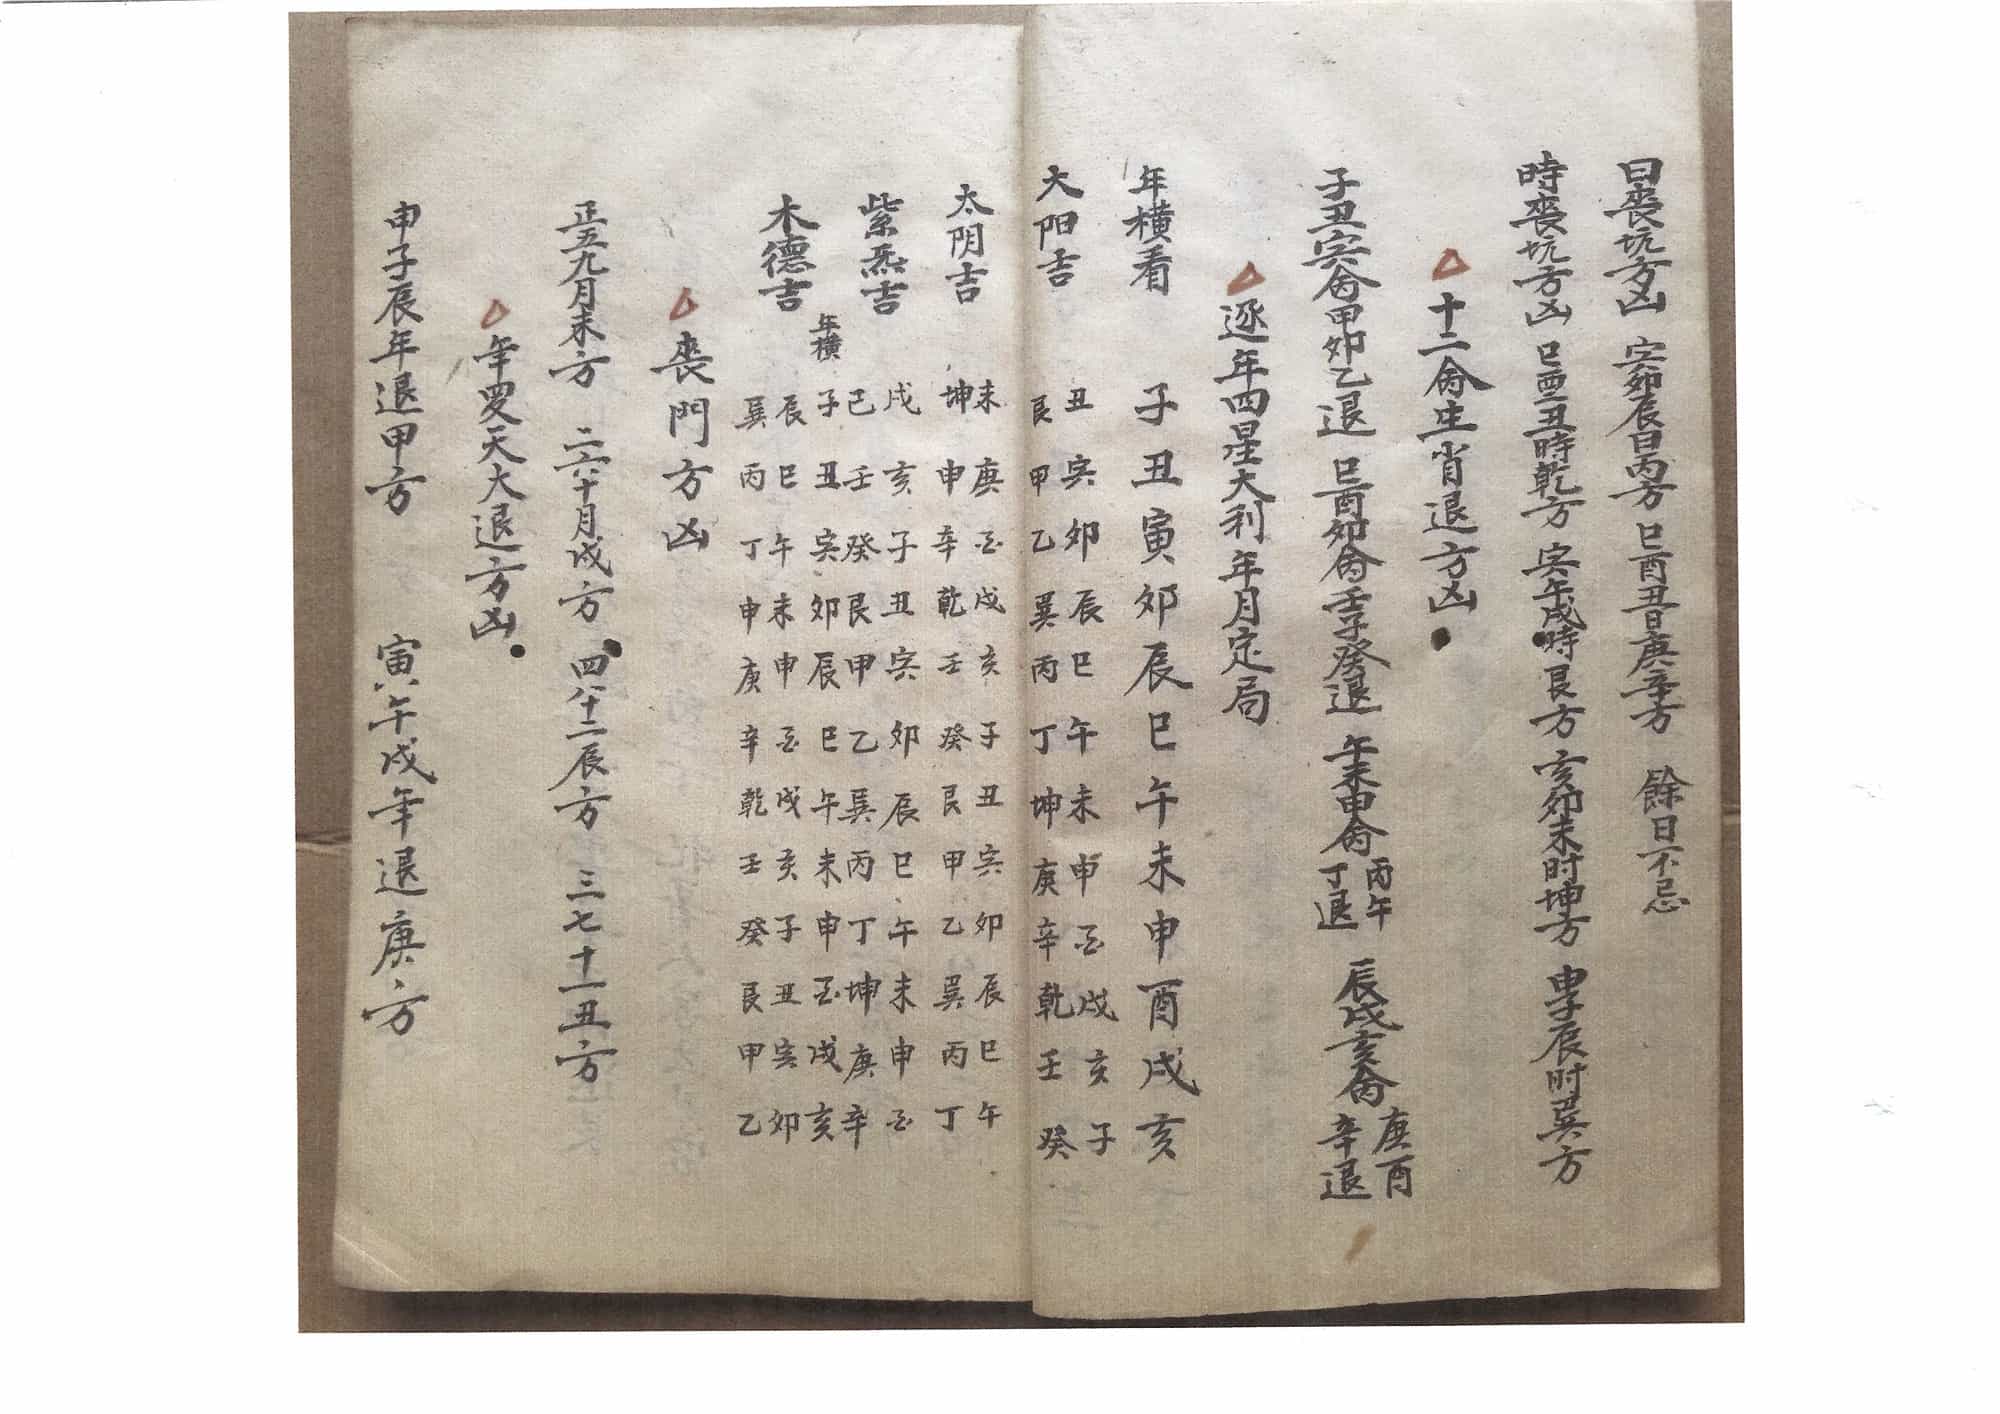 日喪坑方凶　寅卯辰日丙方　巳酉丑日庚辛方　餘日不忌
時喪坑方凶　巳酉丑時乾方　寅午戌時艮方　亥卯未时坤方　申子辰时巽方
十二命生肖退方凶
子丑寅命甲卯乙退　巳酉卯命壬子癸退　午未申命丙午丁退　辰戌亥命庚酉辛退
逐年四星大利年月定局
年横看　子丑寅卯辰巳午未申酉戌亥
太阳吉　丑寅卯辰巳午未申酉戌亥子
艮甲乙巽丙丁坤庚辛乾壬癸
太阴吉　未庚酉戌亥子丑寅卯辰巳午
坤申辛乾壬癸艮甲乙巽丙丁
紫炁吉　戌亥子丑寅卯辰巳午未申酉
巳壬癸艮甲乙巽丙丁坤庚辛
年横　子丑寅卯辰巳午未申酉戌亥
木德吉　辰巳午未申酉戌亥子丑寅卯
巽丙丁申庚辛乾壬癸艮甲乙
喪門方凶
正五九月未方　二六十月戌方　四八十二辰方　三七十一丑方
年罗天大退方凶
申子辰年退甲方　寅午戌年退庚方